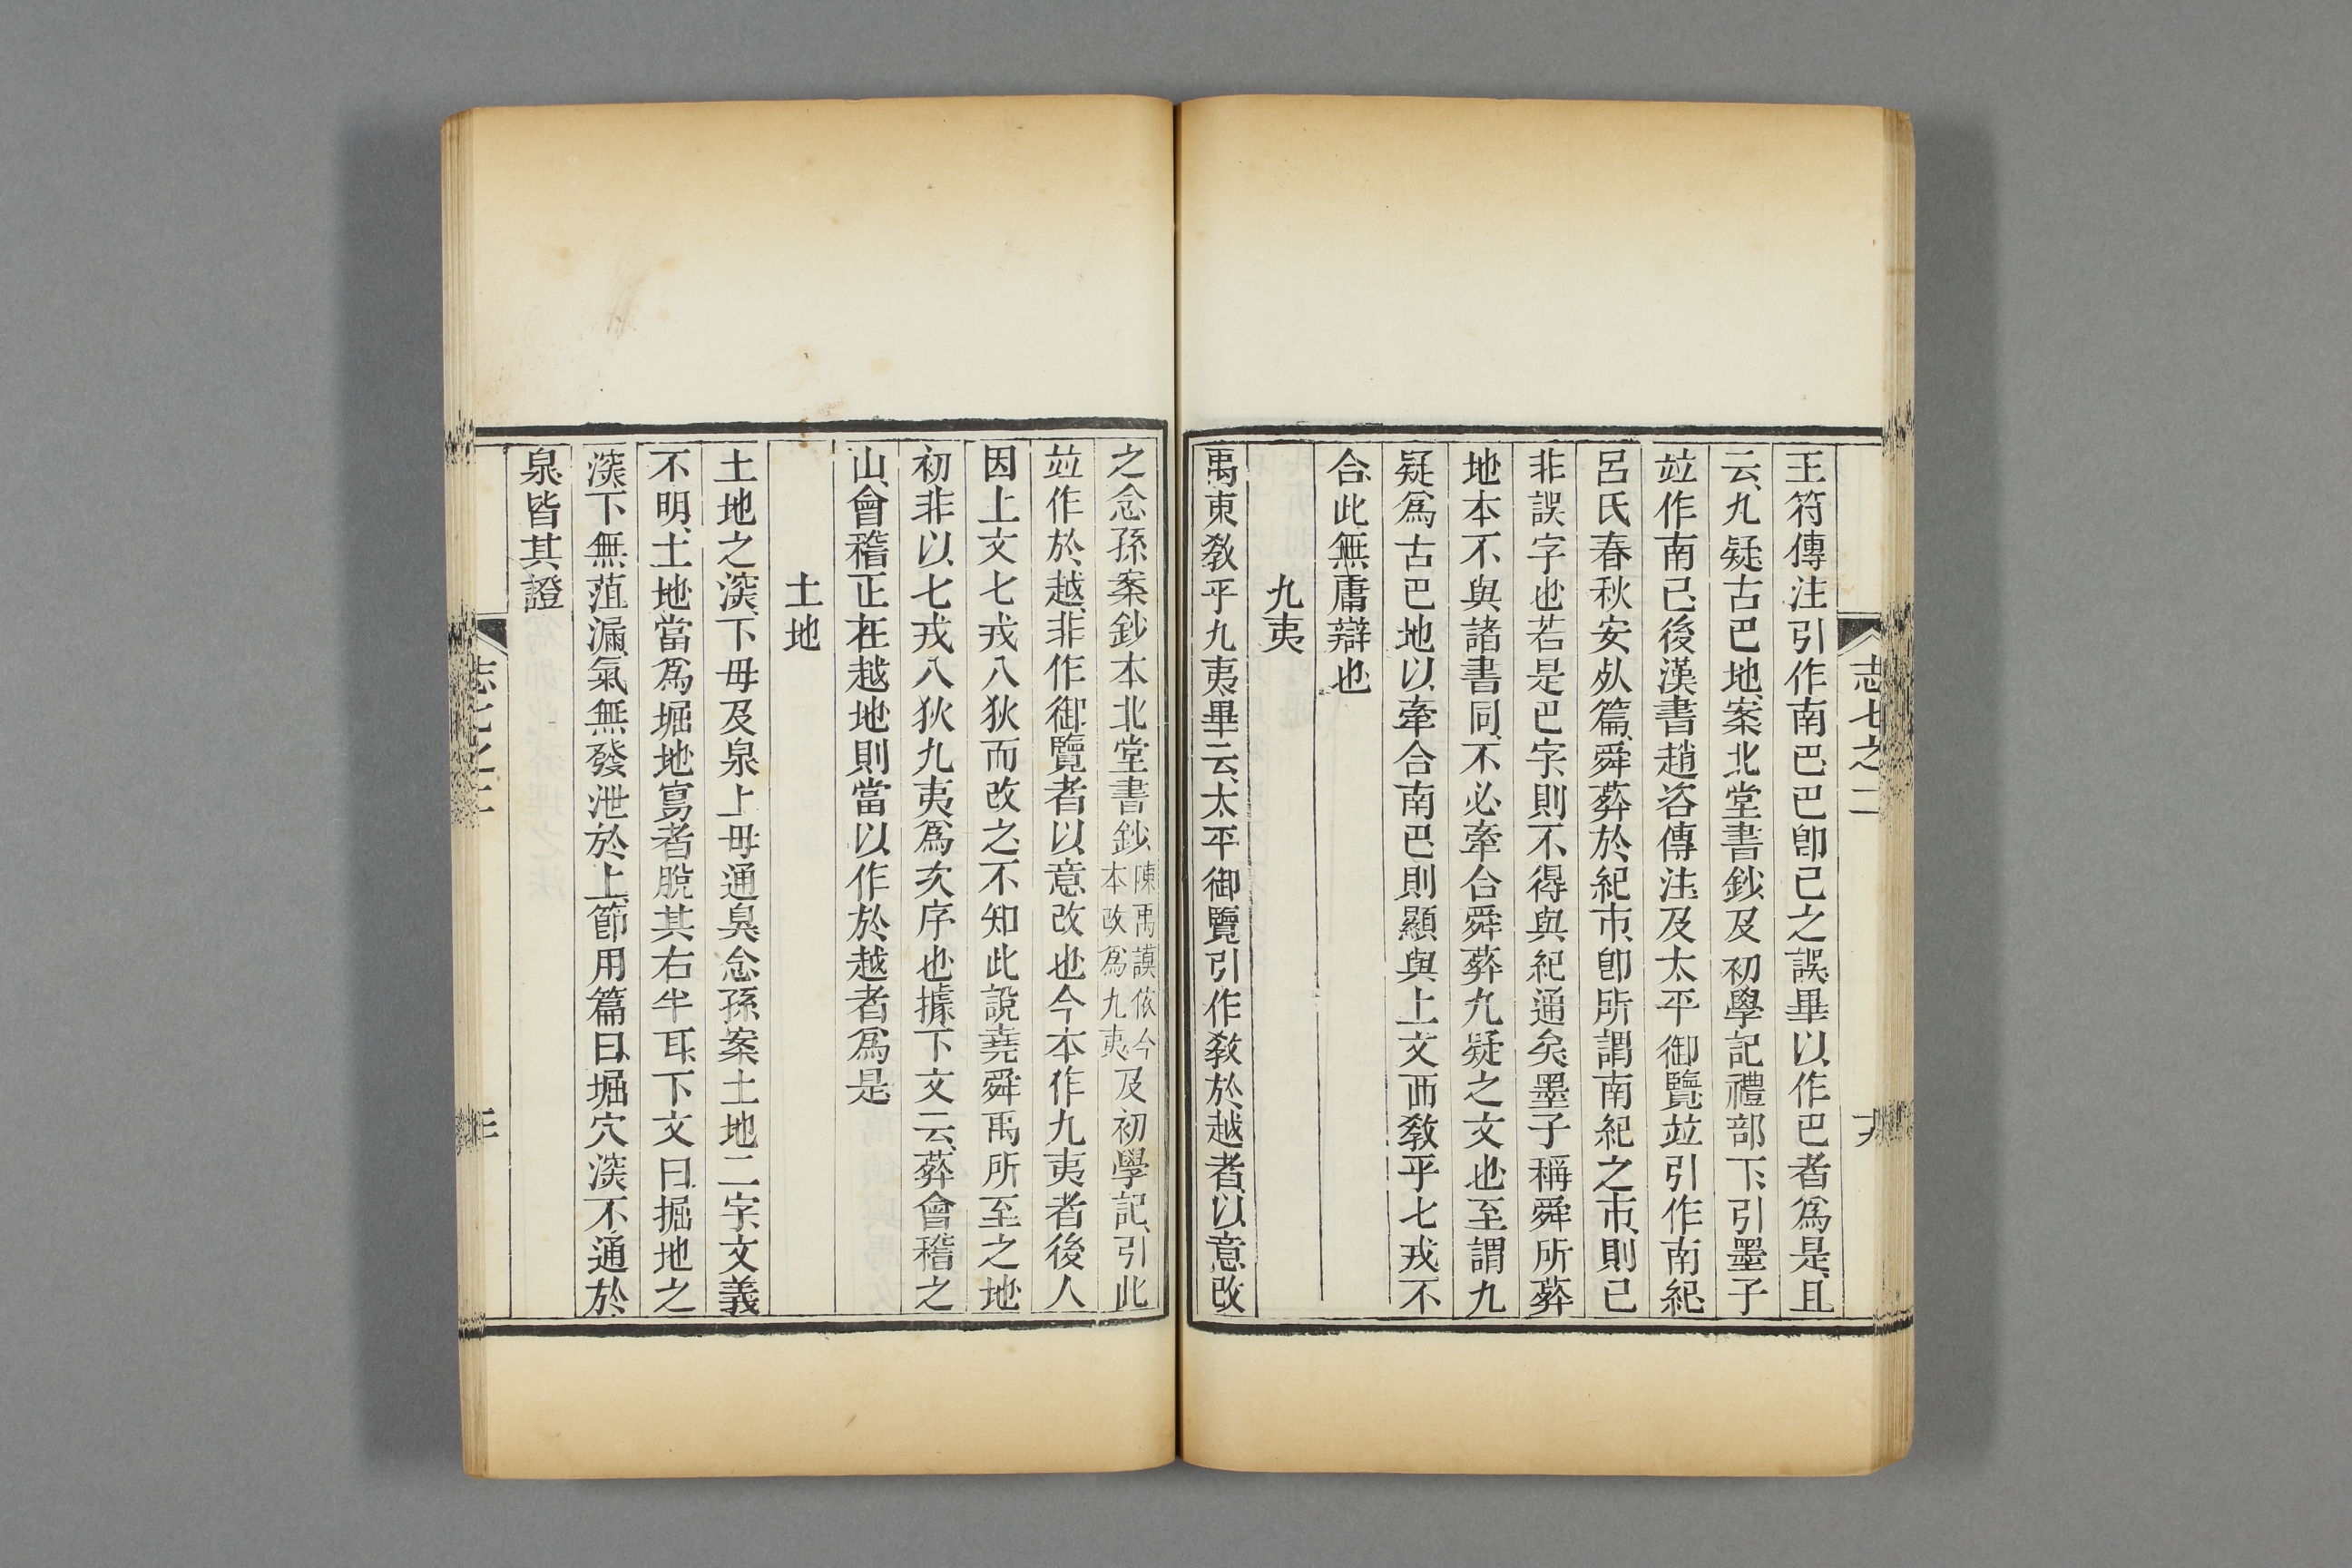 志七之二
十九
王符傳注引作南巴巴卽己之誤畢以作巴者爲是且
云九疑古巴地案北堂書鈔及初學記禮部下引墨子
竝作南己後漢書趙咨傳注及太平御覽竝引作南紀
呂氏春秋安死篇舜葬於紀市卽所謂南紀之市則已
非誤字也若是巴字則不得與紀通矣墨子稱舜所葬
地本不與諸書同不必牽合舜葬九疑之文也至謂九
疑爲古巴地以牽合南巴則顯與上文西敎乎七戎不
合此無庸辯也
九夷
禹東敎乎九夷畢云太平御覽引作敎於越者以意改
之念孫案鈔本北堂書鈔陳禹謨依今本改爲九夷及初學記引此
竝作於越非作御覽者以意改也今本作九夷者後人
因上文七戎八狄而改之不知此說堯舜禹所至之地
初非以七戎八狄九夷爲次序也據下文云葬會稽之
山會稽正在越地則當以作於越者爲是
土地
土地之深下毋及泉上毋通臭念孫案土地二字文義
不明土地當爲堀地寫者脫其右半耳下文曰掘地之
深下無菹漏氣無發泄於上節用篇曰堀穴深不通於
泉皆其證
志七之二